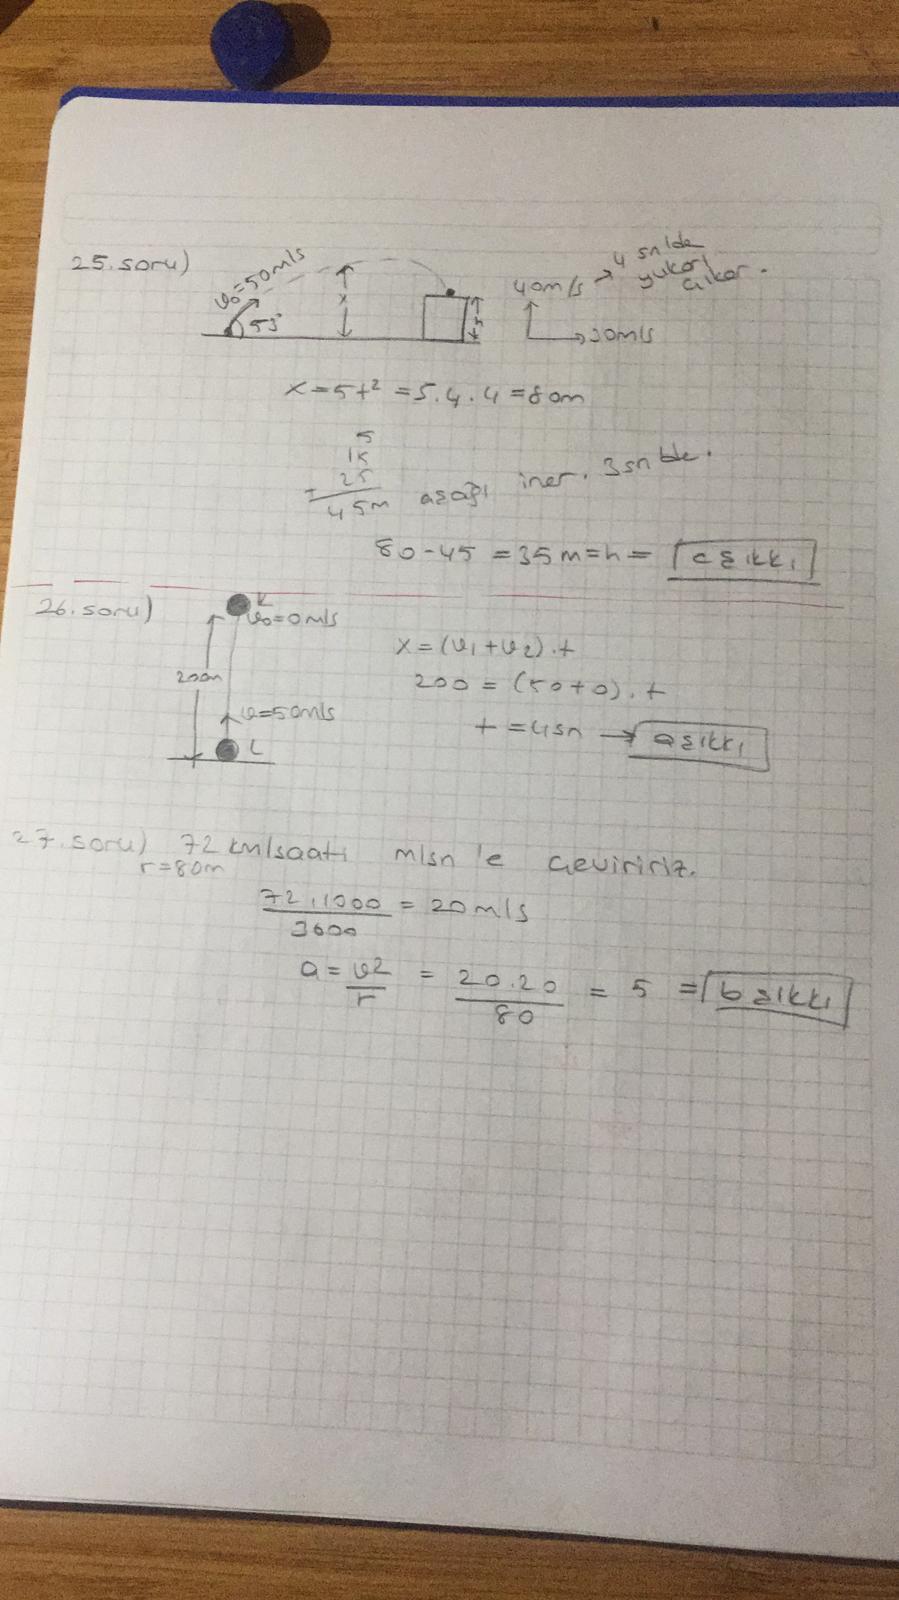 25.soru)
v₀=50m/s
53°
x
h
40m/s → 4 sn'de
yukarı
çıkar.
30m/s
x=5t² =5.4.4 =80m
5
15
25
+
45m aşağı iner. 3sn'de.
80-45 =35m=h= c şıkkı
26.soru)
K
v₀=0m/s
200m
v=50m/s
L
x=(v₁+v₂).t
200=(50+0).t
t=4sn → a şıkkı
27.soru) 72 km/saati m/sn'e çeviririz.
r=80m
72.1000/3600 = 20m/s
a = v²/r = 20.20/80 = 5 = b şıkkı